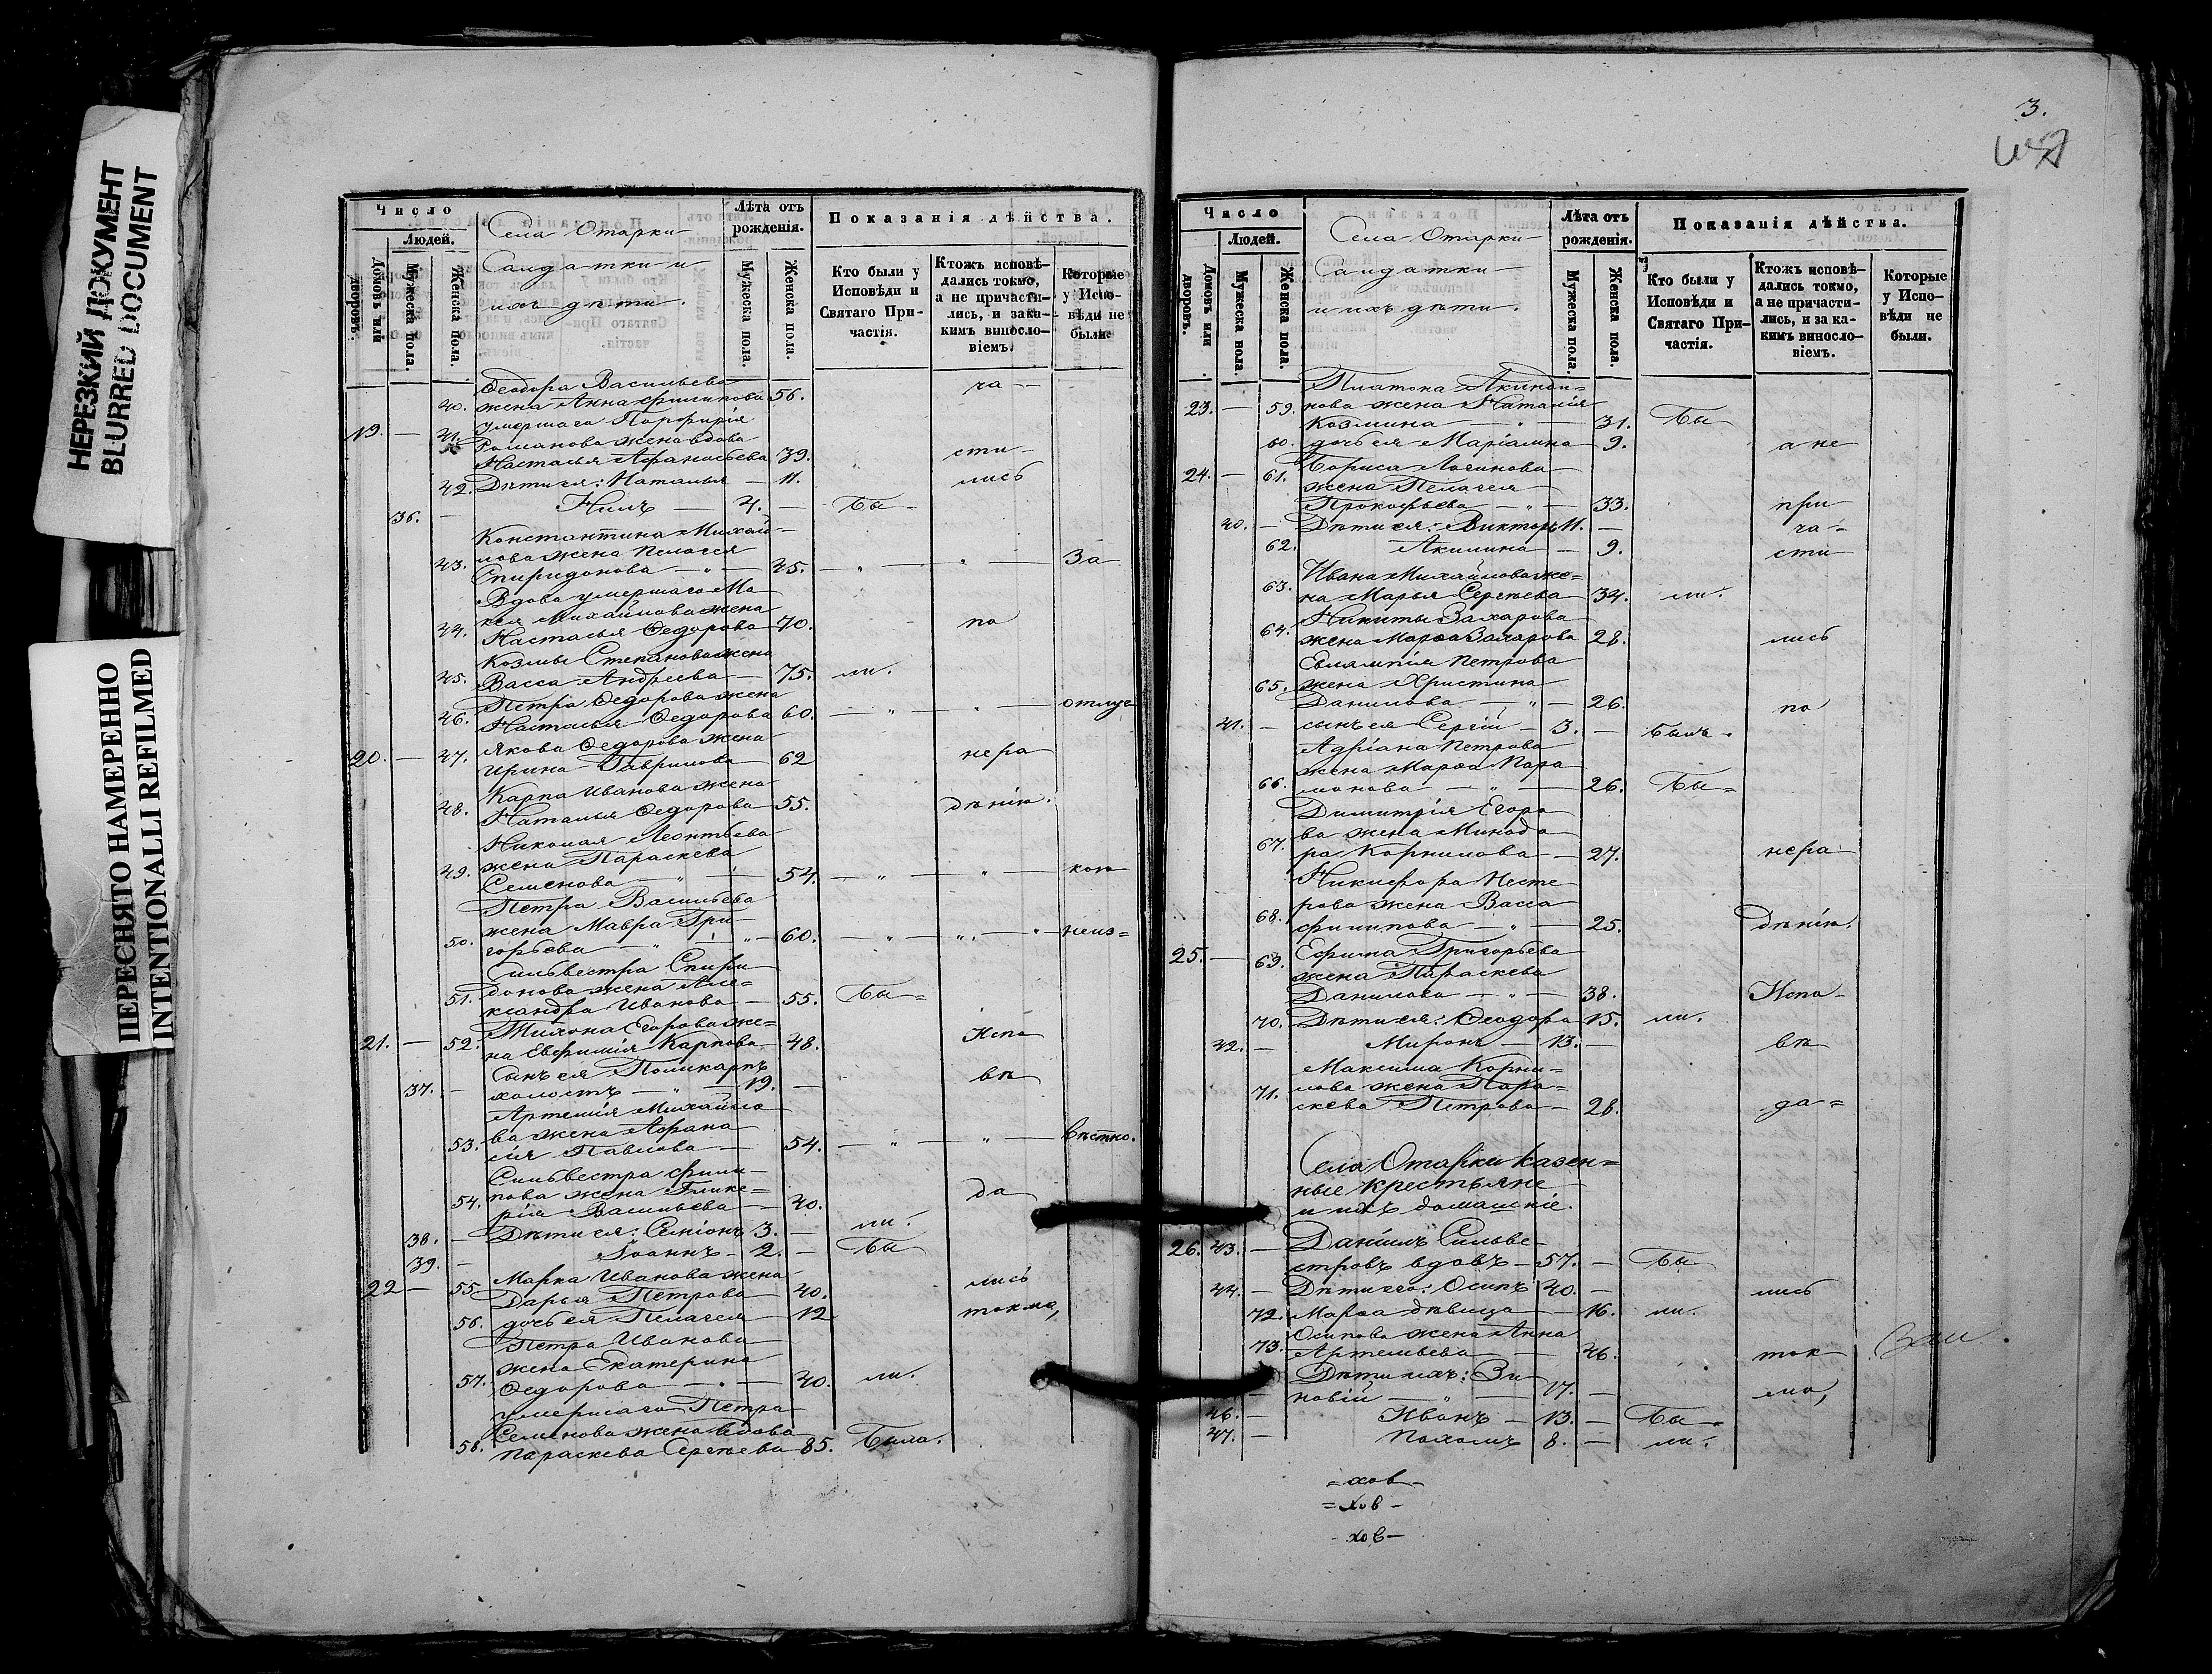 НЕРЕЗКИЙ ДОКУМЕНТ
BLURRED DOCUMENT
ПЕРЕСНЯТО НАМЕРЕННО
INTENTIONALLI REFILMED
Число
Людей.
Домовъ или дворовъ.
Мужеска пола.
Женска пола.
Села Отарки
Салдатки и
ихъ дѣти.
Лѣта отъ рожденія.
Мужеска пола.
Женска пола.
Показанія дѣйства.
Кто были у Исповѣди и Святаго Причастія.
Ктожъ исповѣдались токмо, а не причастились, и за какимъ винословіемъ.
Которые у Исповѣди не были.
Ѳеодора Васильева ча
40. жена Анна Филипова 56.
19. — 41. умершаго Порфирія
Романова жена вдова
Настасья Афанасьева 39. сти
42. Дѣти ея: Наталья — 11. лись
36. — Нилъ — 4. — Бы
Константина Михай
лова жена Пелагея
43. Спиридонова — „ — 45. — „ — „ — За
Вдова умершаго Мо
кея Михайлова жена
44. Настасья Ѳедорова 70. по
Козмы Степанова жена
45. Васса Андреева — 75. ли.
Петра Ѳедорова жена
46. Настасья Ѳедорова 60. — „ — „ — отлуч
20. — 47. Якова Ѳедорова жена
Ирина Гаврилова 62 нера
Карпа Иванова жена
48. Наталья Ѳедорова 55. дѣнію.
Николая Леонтьева
49. жена Параскева
Семенова — „ — 54. — „ — „ — кою
Петра Васильева
жена Мавра Гри
50. горьева — „ — 60. — „ — „ — неиз=
Сильвестра Спири
51. донова жена Але=
ксандра Иванова — 55. Бы=
Тихона Егорова же=
21. — 52. на Евфимія Карпова 48. Испо
Сынъ ея Поликарпъ
37. — холостъ — „ — 19. — вѣ
Артемія Михайло
ва жена Афана
53. сія Павлова — 54. — „ — „ — вѣстно.
Сильвестра Фили
54. пова жена Глике=
рія Васильева — 40. да
38. — Дѣти ея: Семіонъ 3. — ли.
39. — Іоаннъ — 2. — Бы
22 — 55. Марка Иванова жена
Дарья Петрова 40. лись
56. дочь ея Пелагея 12 токмо,
Петра Иванова
жена Екатерина
57. Ѳедорова — „ — 40. ли.
умершаго Петра
Семенова жена вдова
58. Параскева Сергѣева 85. Была.
3.
Число
Людей.
Домовъ или дворовъ.
Мужеска пола.
Женска пола.
Села Отарки
Салдатки
и ихъ дѣти.
Лѣта отъ рожденія.
Мужеска пола.
Женска пола.
Показанія дѣйства.
Кто были у Исповѣди и Святаго Причастія.
Ктожъ исповѣдались токмо, а не причастились, и за какимъ винословіемъ.
Которые у Исповѣди не были.
Платона Акинди=
23. — 59. нова жена Наталія
Козмина — „ — 31. Бы
60. дочь ея Маріамна 9. а не
24. — 61. Бориса Логинова
жена Пелагея
Прокофьева — „ — 33. при
40. — Дѣти ея: Викторъ 11. — ча=
62. Акилина — 9. сти
Ивана Михайлова же=
63. на Марья Сергѣева 34. ли.
Никиты Захарова
64. жена Марѳа Захарова 28. лись
Евлампія Петрова
65. жена Христина
Данилова — „ — 26. по
41. — сынъ ея Сергій — 3. — Былъ.
Адріана Петрова
жена Марѳа Пара
66. монова — „ — 26. Бы=
Димитрія Егоро
ва жена Минодо
67. ра Корнилова — 27. нера
Никифора Несте
рова жена Васса
68. Филипова — „ — 25. дѣнію.
25. — 69. Ефима Григорьева
жена Параскева
Данилова — „ — 38. Испо
70. Дѣти ея: Ѳеодора 15. ли.
42. — Миронъ — 13. — вѣ
Максима Корни=
лова жена Пара=
71. скева Петрова — 28. да=
Села Отарки казен=
ные крестьяне
и ихъ домашніе.
26. 43. — Даніилъ Сильве
стровъ вдовъ — 57. — Бы
44. — Дѣти его: Осипъ 40. — лись
72. Марѳа дѣвица — 16. ли.
Осипова жена Анна
73. Артемьева — 46. ток
Дѣти ихъ: Зи
новій — „ — 17. — мо,
46. — Иванъ — 13. — Бы
47. — Пахомъ 8. — ли.
=хов—
=хов—
-хов—